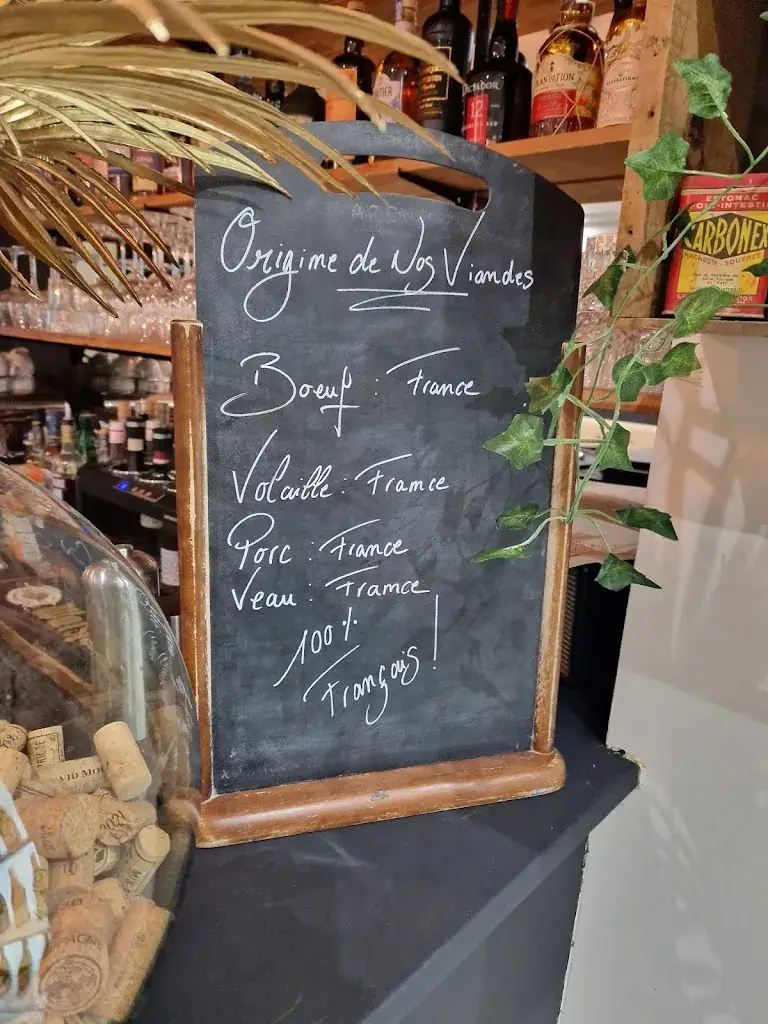 DICTADOR
12
PLANTATION
ESTOMAC
CARBONEX
Origine de Nos Viandes
Boeuf : France
Volaille : France
Porc : France
Veau : France
100%
Français !